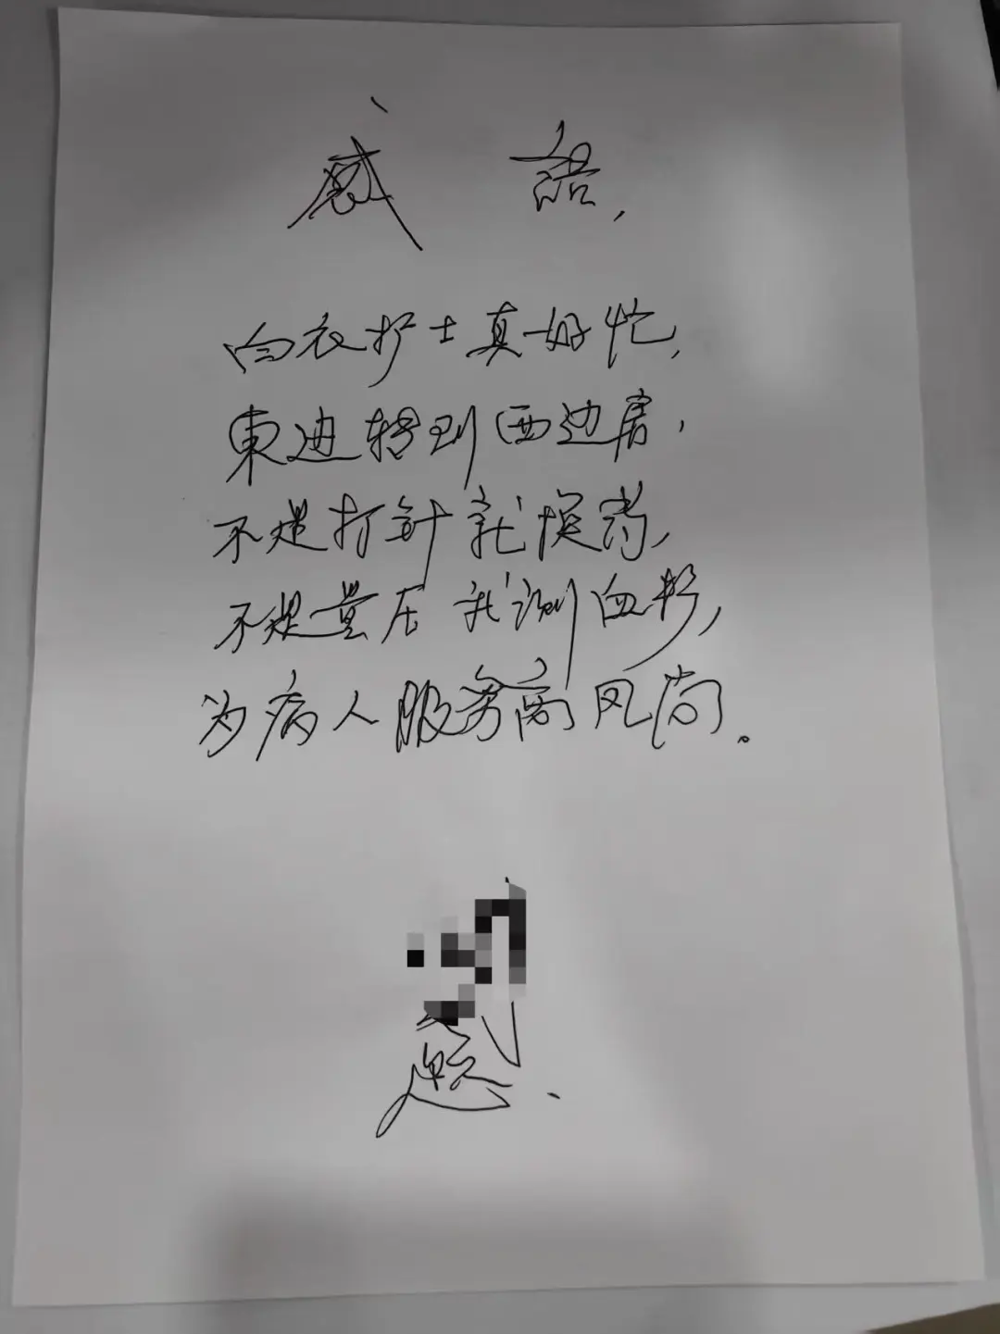 感語，
白衣护士真好忙，
東边转到西边房，
不是打针就换药，
不是量压就测血糖，
为病人服务高风尚。
题.